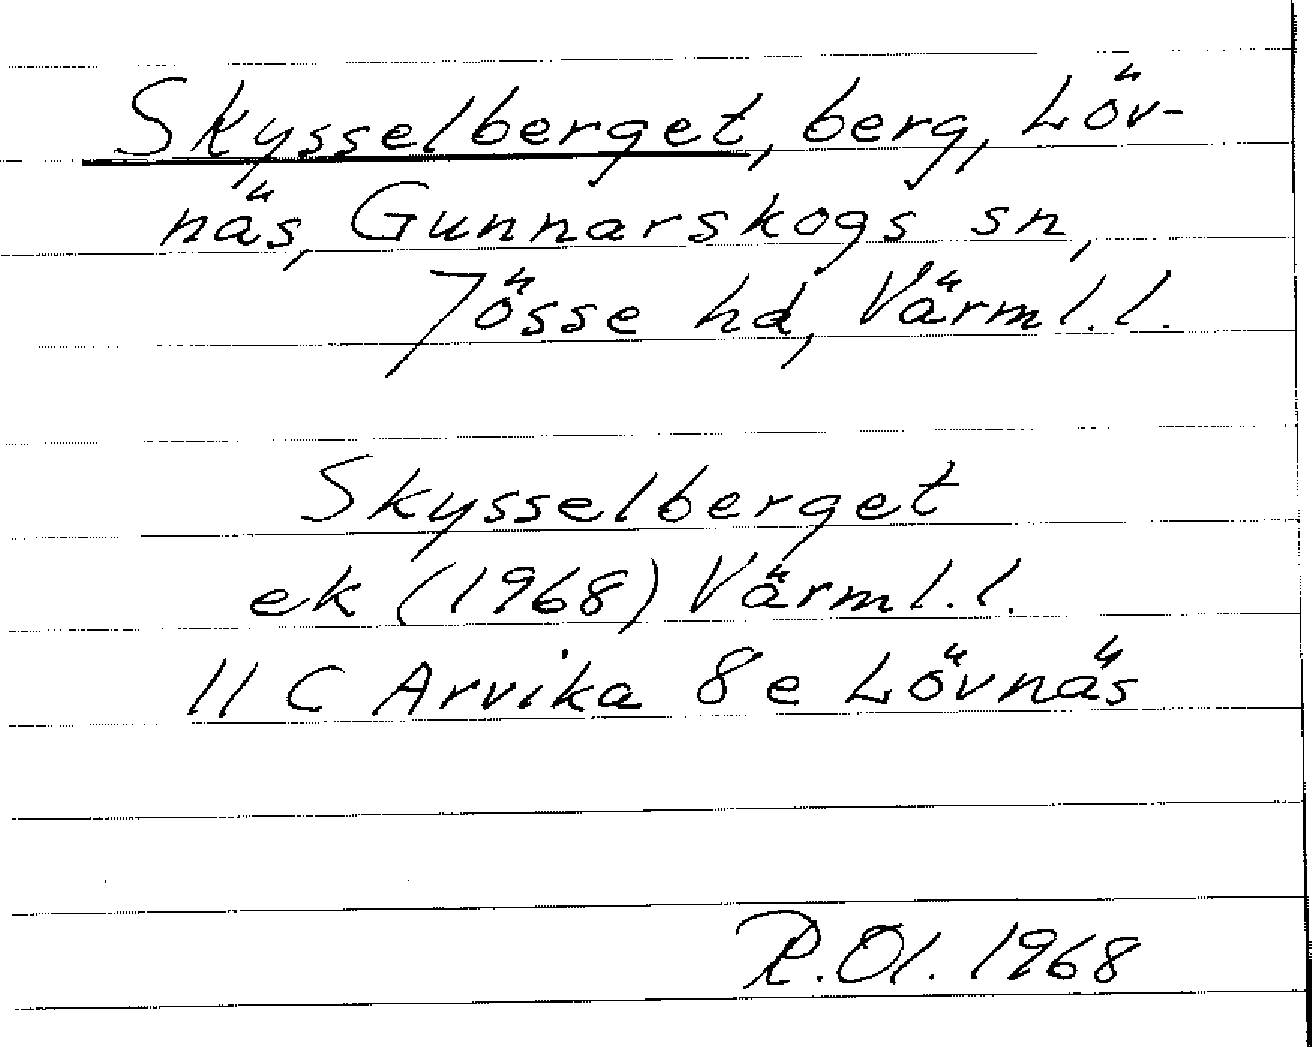 Skysselberget, berg, Löv-
näs, Gunnarskogs sn,
Jösse hd, Värml.l.
Skysselberget
ek (1968) Värml.l.
11 C Arvika 8e Lövnäs
R.Ol. 1968